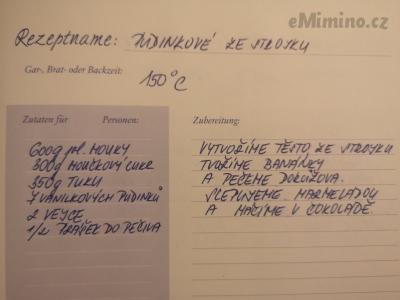 eMimino.cz
Rezeptname: PUDINKOVÉ ZE STROJKU
Gar-, Brat- oder Backzeit:
150°C
Zutaten für Personen:
600g pl. MOUKY
300g MOUČKOVÝ CUKR
350g TUKU
7 VANILKOVÝCH PUDINKŮ
2 VEJCE
1/2 PRÁŠEK DO PEČIVA
Zubereitung:
VYTVOŘÍME TĚSTO ZE STROJKU
TVOŘÍME BANÁNKY
A PEČEME DORŮŽOVA.
SLEPUJEME MARMELÁDOU
A MÁČÍME V ČOKOLÁDĚ.